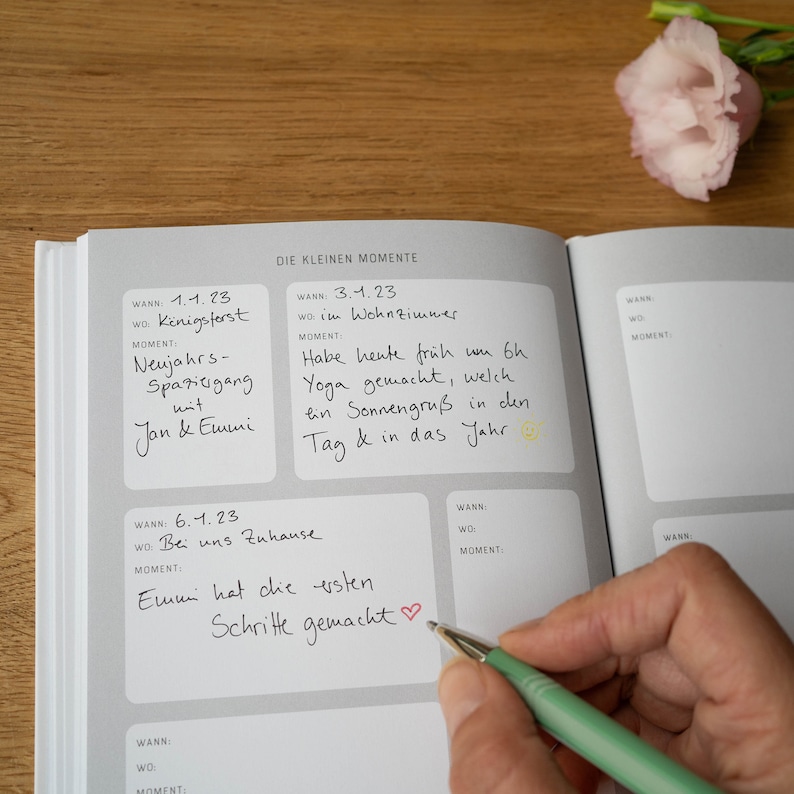 DIE KLEINEN MOMENTE
WANN: 1.1.23
WO: Königsforst
MOMENT:
Neujahrs-
Spaziergang
mit
Jan & Emmi
WANN: 3.1.23
WO: im Wohnzimmer
MOMENT:
Habe heute früh um 6h
Yoga gemacht, welch
ein Sonnengruß in den
Tag & in das Jahr
WANN: 6.1.23
WO: Bei uns Zuhause
MOMENT:
Emmi hat die ersten
Schritte gemacht
WANN:
WO:
MOMENT:
WANN:
WO:
MOMENT:
WANN:
WO:
MOMENT:
WANN: